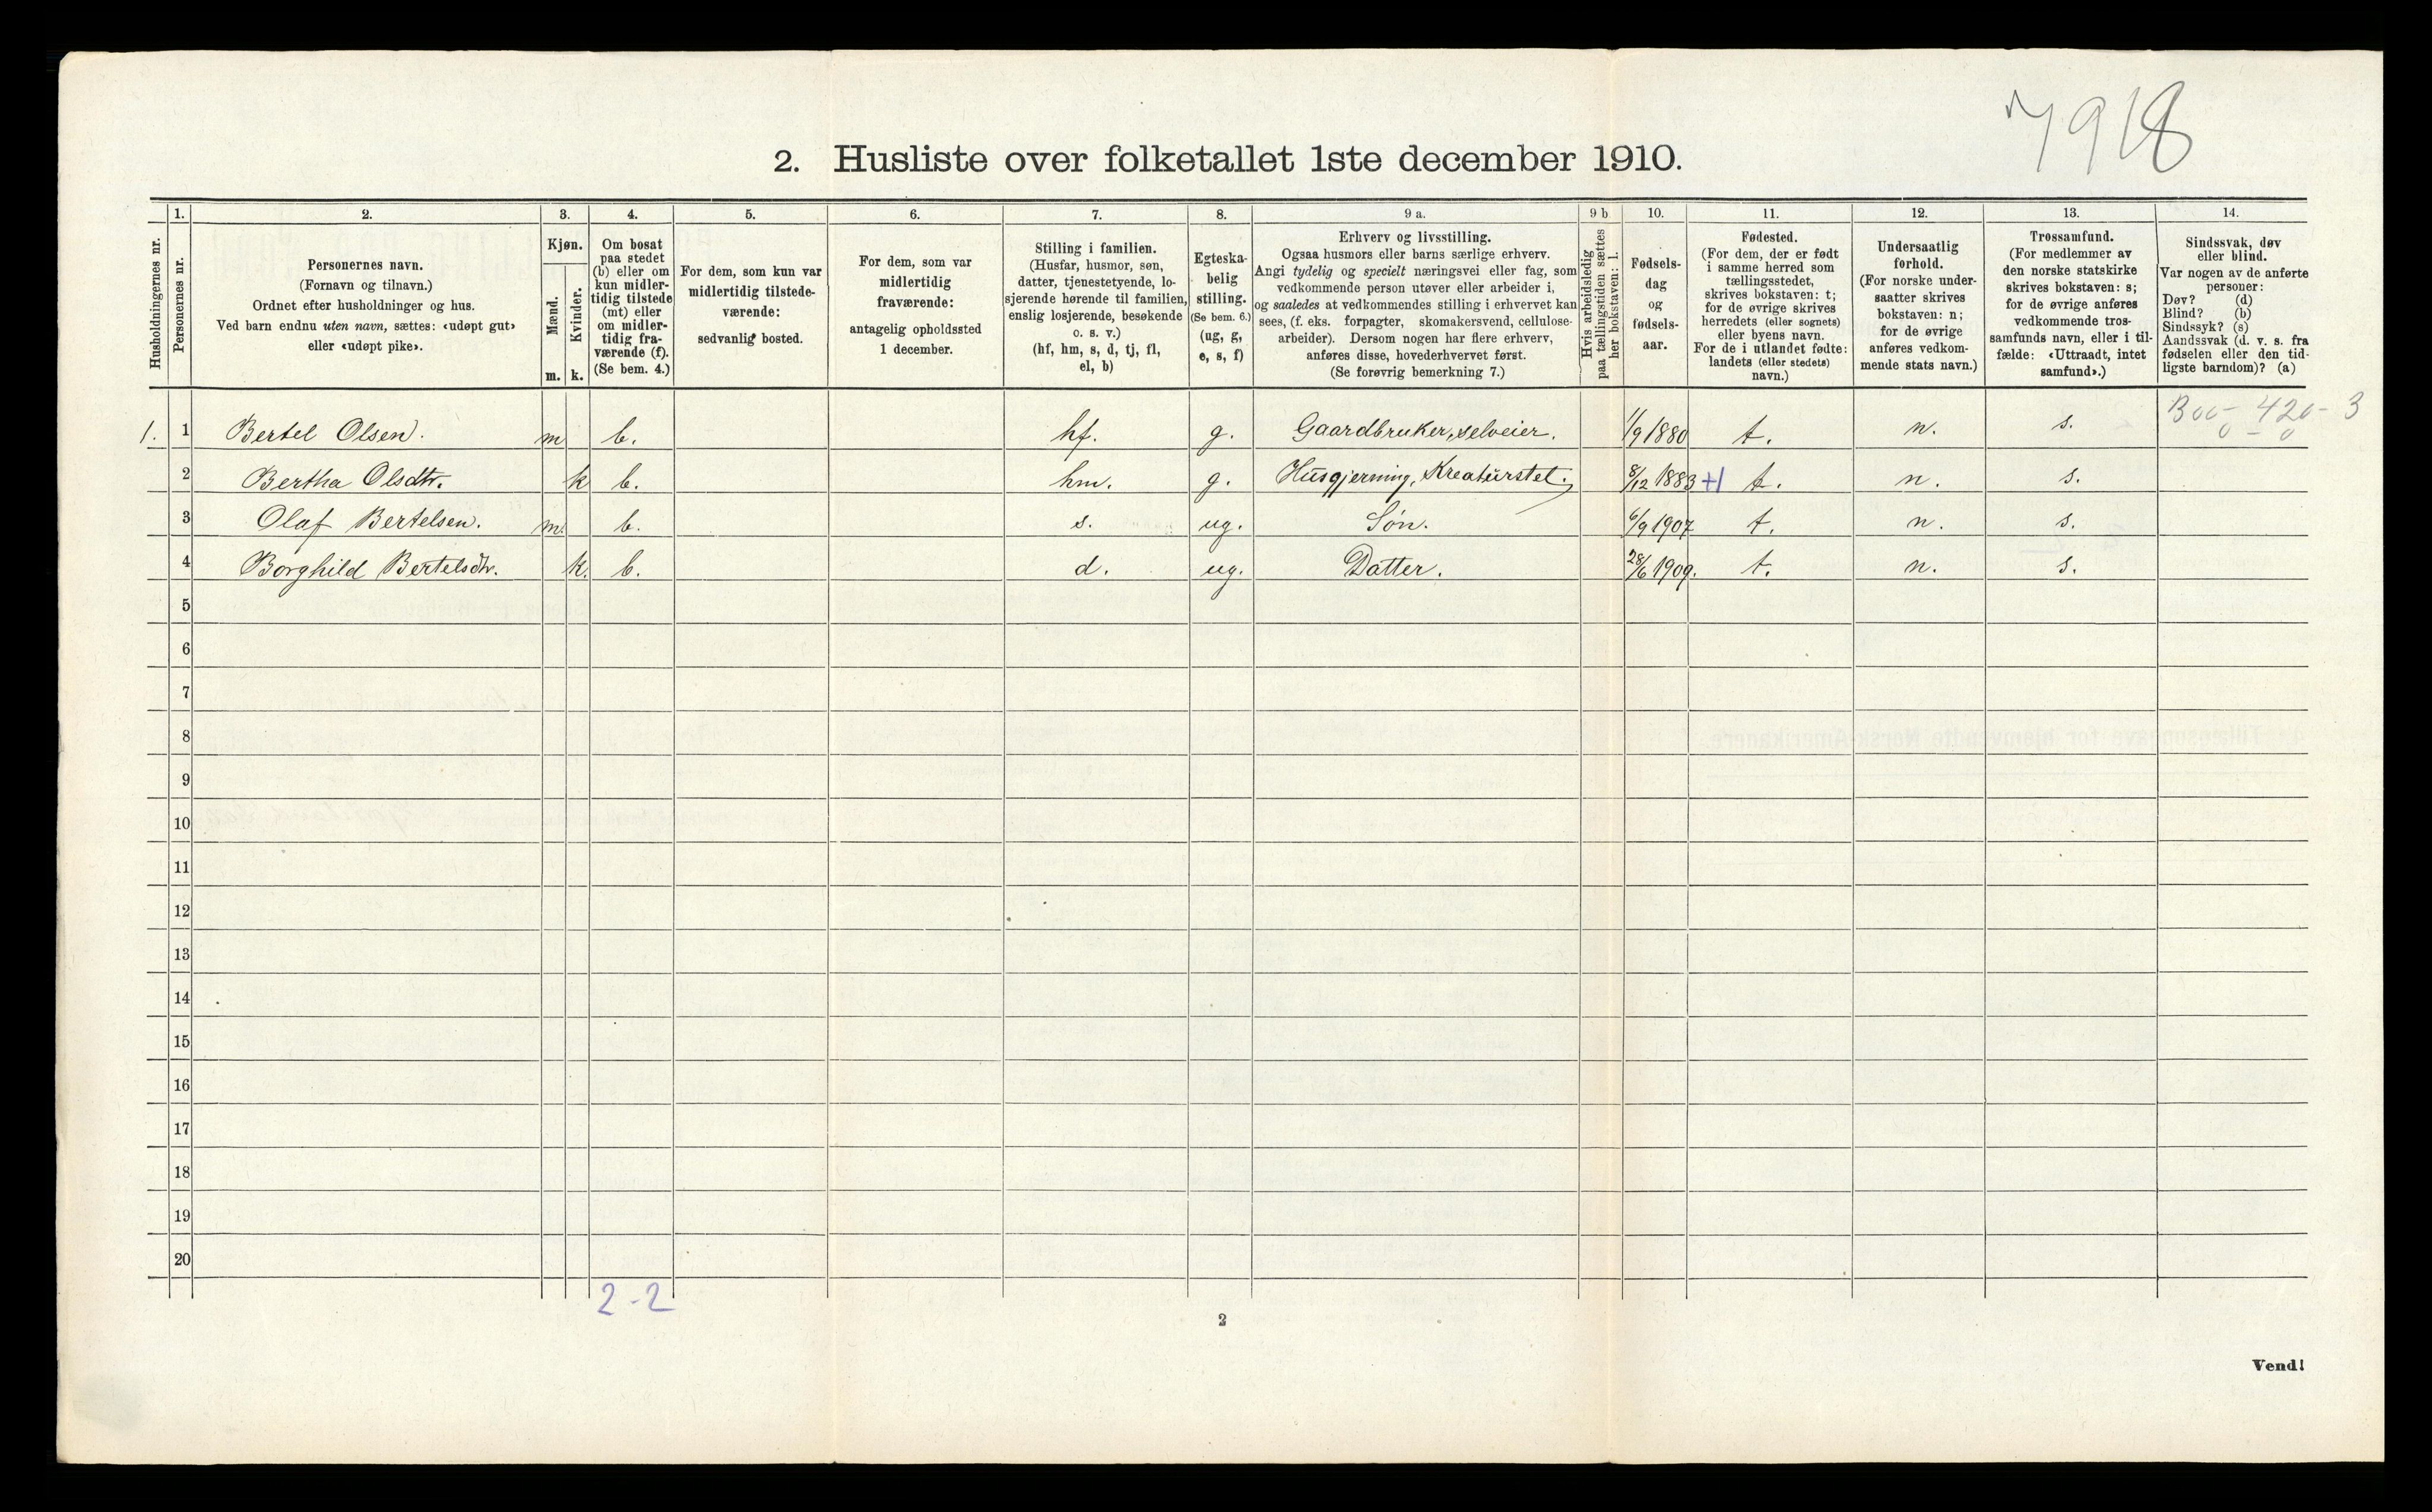 7918
2. Husliste over folketallet 1ste december 1910.
Husholdningernes nr.
1. 2. 3. 4. 5. 6. 7. 8. 9 a. 9 b 10. 11. 12. 13. 14.
Personernes nr.
Personernes navn.
(Fornavn og tilnavn.)
Ordnet efter husholdninger og hus.
Ved barn endnu uten navn, sættes: «udøpt gut»
eller «udøpt pike».
Kjøn.
Mænd.
Kvinder.
m. k.
Om bosat
paa stedet
(b) eller om
kun midler-
tidig tilstede
(mt) eller
om midler-
tidig fra-
værende (f).
(Se bem. 4.)
For dem, som kun var
midlertidig tilstede-
værende:
sedvanlig bosted.
For dem, som var
midlertidig
fraværende:
antagelig opholdssted
1 december.
Stilling i familien.
(Husfar, husmor, søn,
datter, tjenestetyende, lo-
sjerende hørende til familien,
enslig losjerende, besøkende
o. s. v.)
(hf, hm, s, d, tj, fl,
el, b)
Egteska-
belig
stilling.
(Se bem. 6.)
(ug, g,
e, s, f)
Erhverv og livsstilling.
Ogsaa husmors eller barns særlige erhverv.
Angi tydelig og specielt næringsvei eller fag, som
vedkommende person utøver eller arbeider i,
og saaledes at vedkommendes stilling i erhvervet kan
sees, (f. eks. forpagter, skomakersvend, cellulose-
arbeider). Dersom nogen har flere erhverv,
anføres disse, hovederhvervet først.
(Se forøvrig bemerkning 7.)
Hvis arbeidsledig
paa tællingstiden sættes
her bokstaven: l.
Fødsels-
dag
og
fødsels-
aar.
Fødested.
(For dem, der er født
i samme herred som
tællingsstedet,
skrives bokstaven: t;
for de øvrige skrives
herredets (eller sognets)
eller byens navn.
For de i utlandet fødte:
landets (eller stedets)
navn.)
Undersaatlig
forhold.
(For norske under-
saatter skrives
bokstaven: n;
for de øvrige
anføres vedkom-
mende stats navn.)
Trossamfund.
(For medlemmer av
den norske statskirke
skrives bokstaven: s;
for de øvrige anføres
vedkommende tros-
samfunds navn, eller i til-
fælde: «Uttraadt, intet
samfund».)
Sindssvak, døv
eller blind.
Var nogen av de anførte
personer:
Døv? (d)
Blind? (b)
Sindssyk? (s)
Aandssvak (d. v. s. fra
fødselen eller den tid-
ligste barndom)? (a)
1. 1 Bertel Olsen. m b. hf. g. Gaardbruker, selveier. 1/9 1880 t. n. s.
2 Bertha Olsdtr. k b. hm. g. Husgjerning, Kreaturstel. 8/12 1883 +1 t. n. s.
3 Olaf Bertelsen. m. b. s. ug. Søn. 6/9 1907 t. n. s.
4 Borghild Bertelsdtr. k. b. d. ug. Datter. 28/6 1909. t. n. s.
5
6
7
8
9
10
11
12
13
14
15
16
17
18
19
20
2-2
2
Vend!